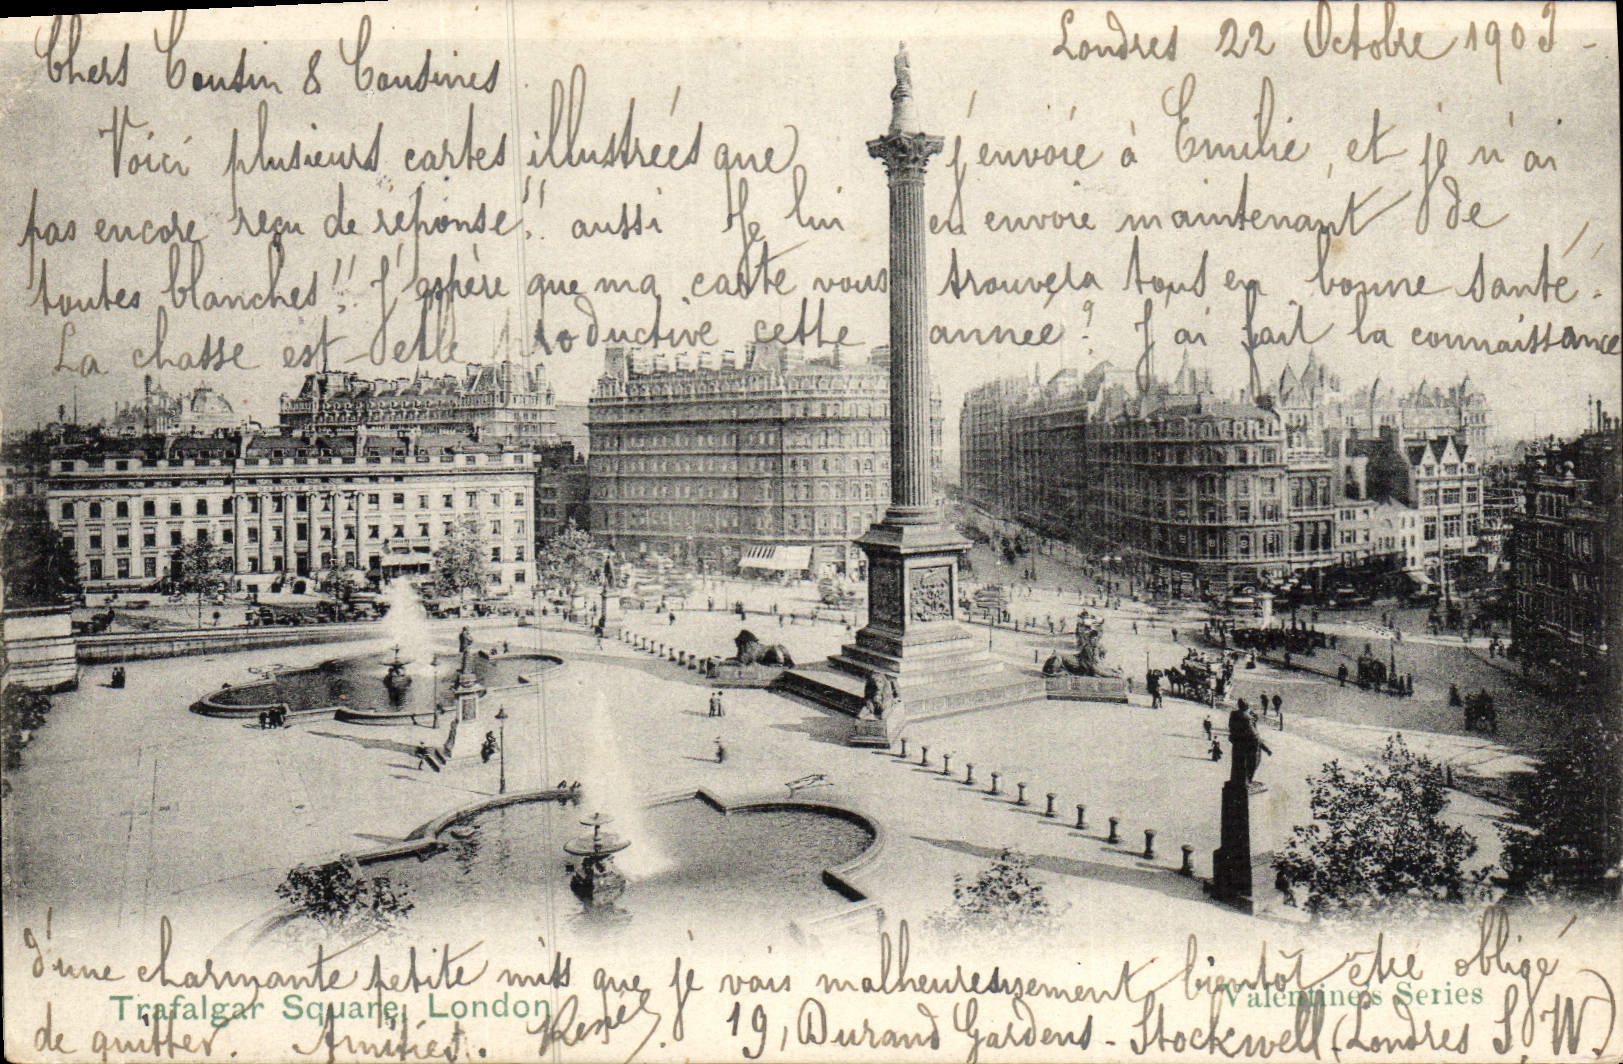 Londres 22 Octobre 1903 -
Chers Cousin & Cousines
Voici plusieurs cartes illustrées que j'envoie à Emilie, et je n'ai
pas encore reçu de réponse!! aussi je lui en envoie maintenant de
toutes blanches!! J'espère que ma carte vous trouvera tous en bonne santé.
La chasse est-elle productive cette année? J'ai fait la connaissance
d'une charmante petite miss que je vais malheureusement bientôt être obligé
Trafalgar Square, London
Valentine's Series
de quitter. Amitiés. René. 19, Durand Gardens - Stockwell (Londres S W.)